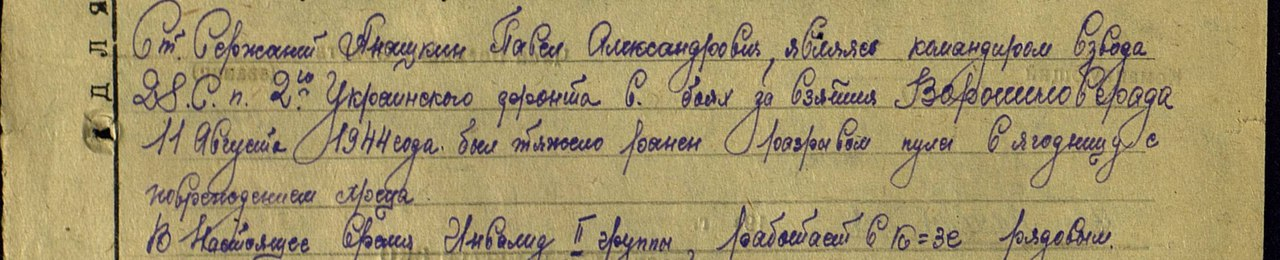 Д Л Я
Ст. Сержант Анашкин Павел Александрович, являясь командиром взвода
28.С.п. 2го Украинского фронта в. боях за взятия Ворошиловграда
11 Августа 1944 года. был тяжело ранен разрывом пули в ягодицу с
повреждением
В настоящее время Инвалид II группы, работает в к=зе рядовым.